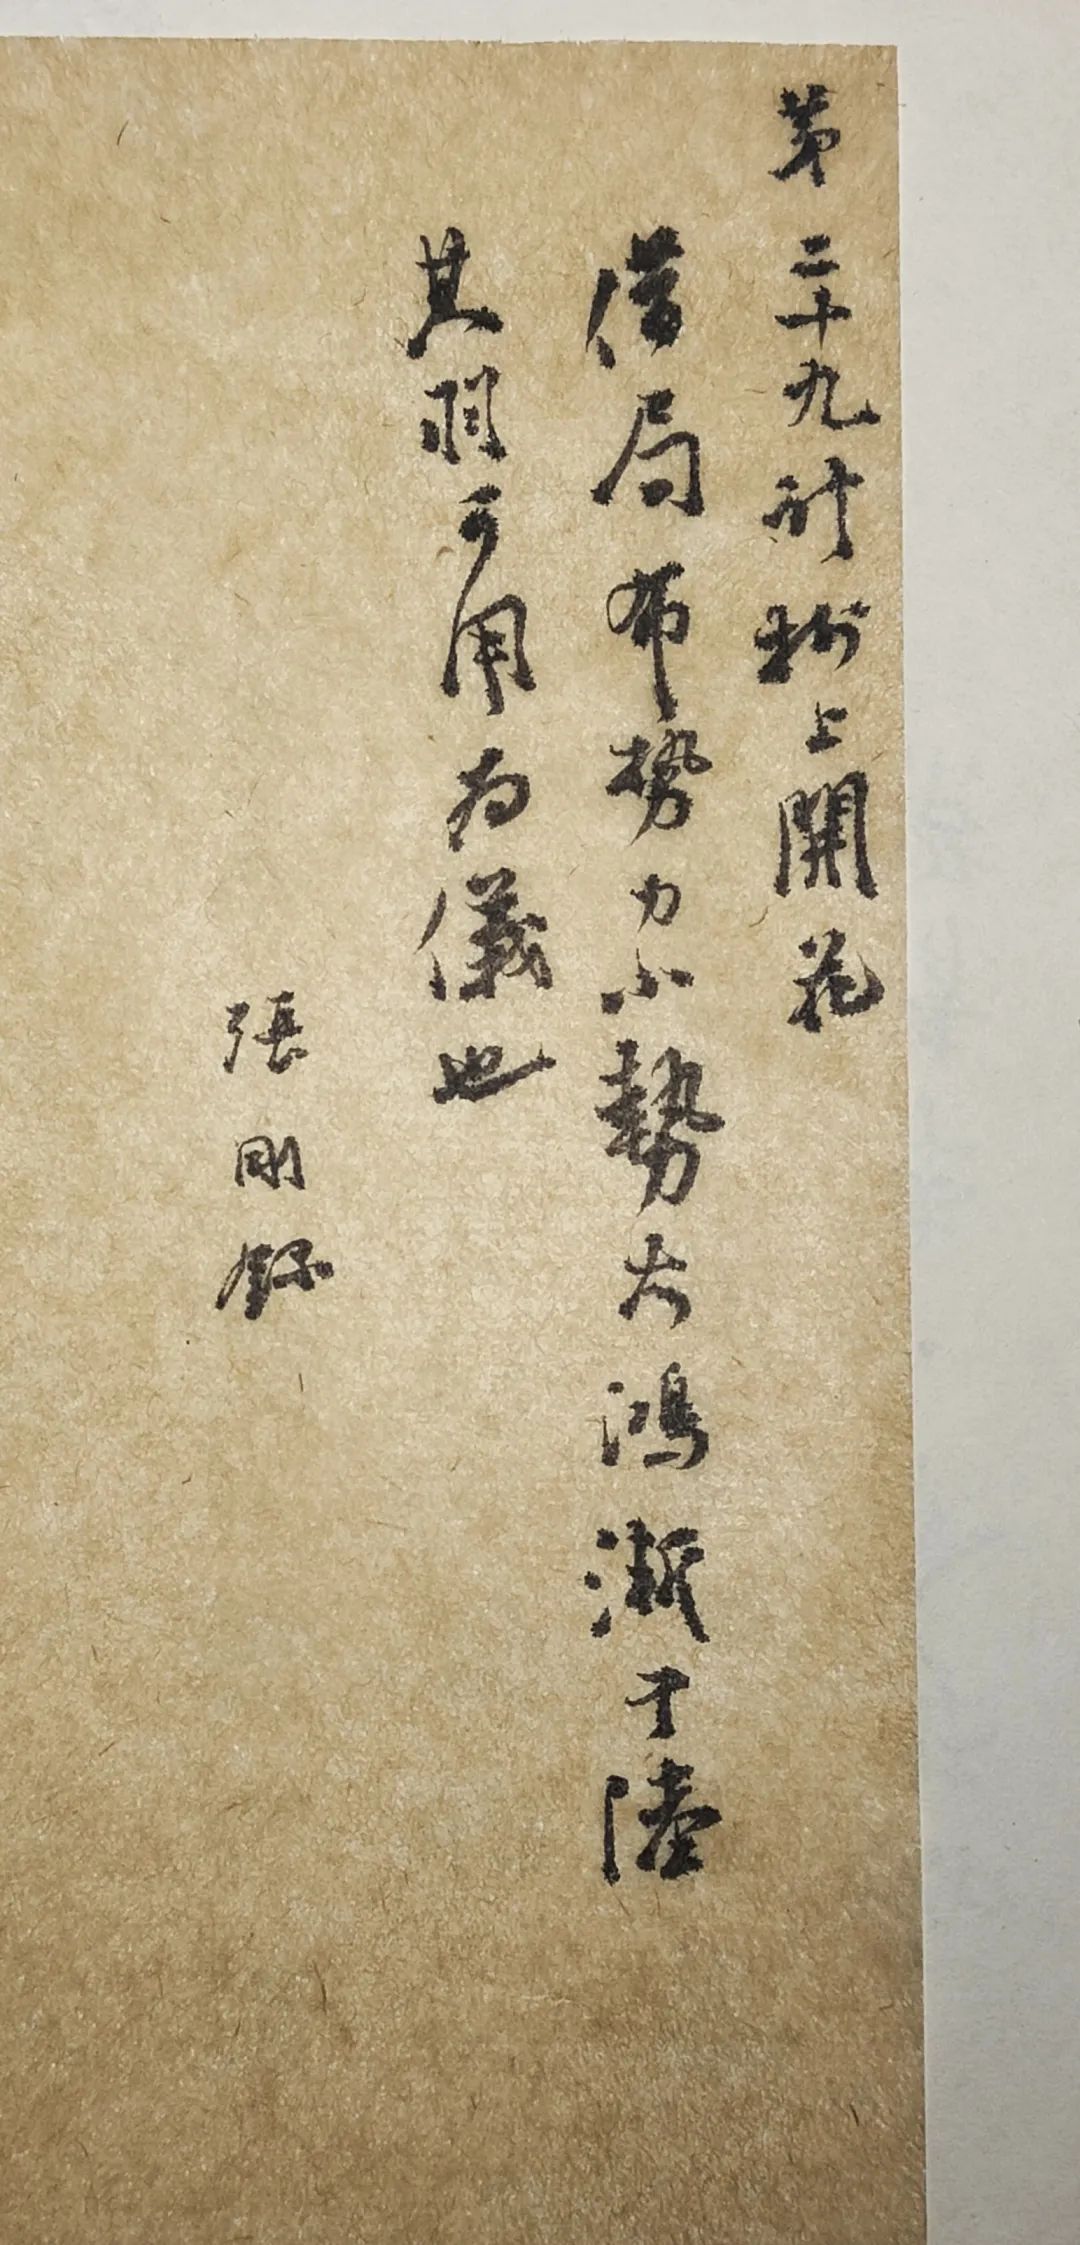 第二十九計樹上開花
借局布勢力小勢大鴻漸于陸
其羽可用為儀也
張剛